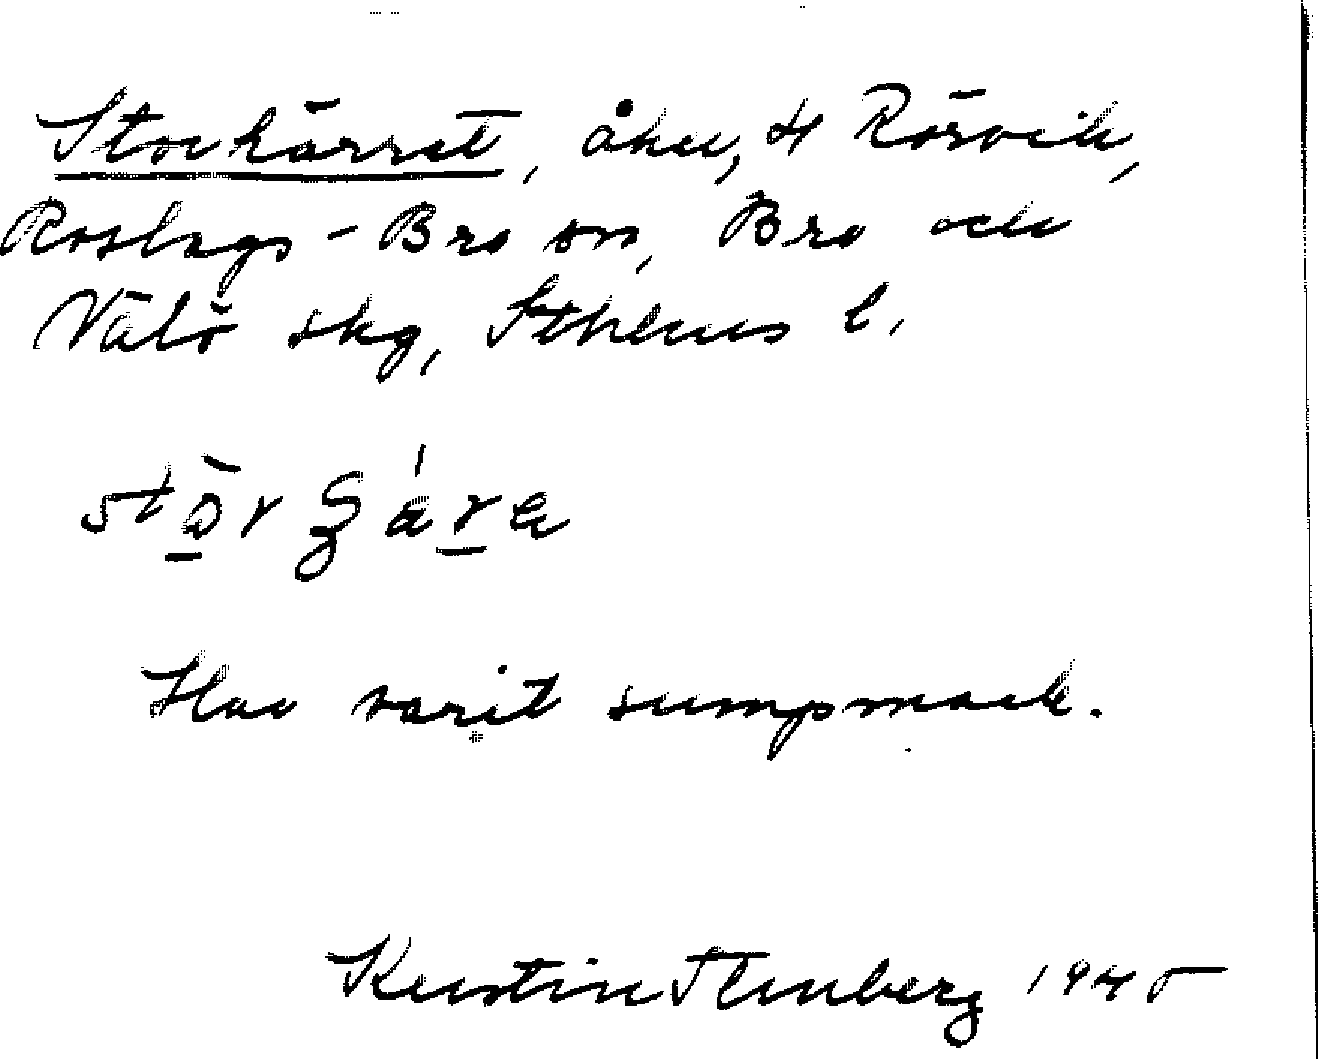 Storkärret, åker, t Rörvik,
Roslags-Bro sn, Bro och
Vätö skg, Sthlms l.
Har varit sumpmark.
Kerstin Stenberg 1945